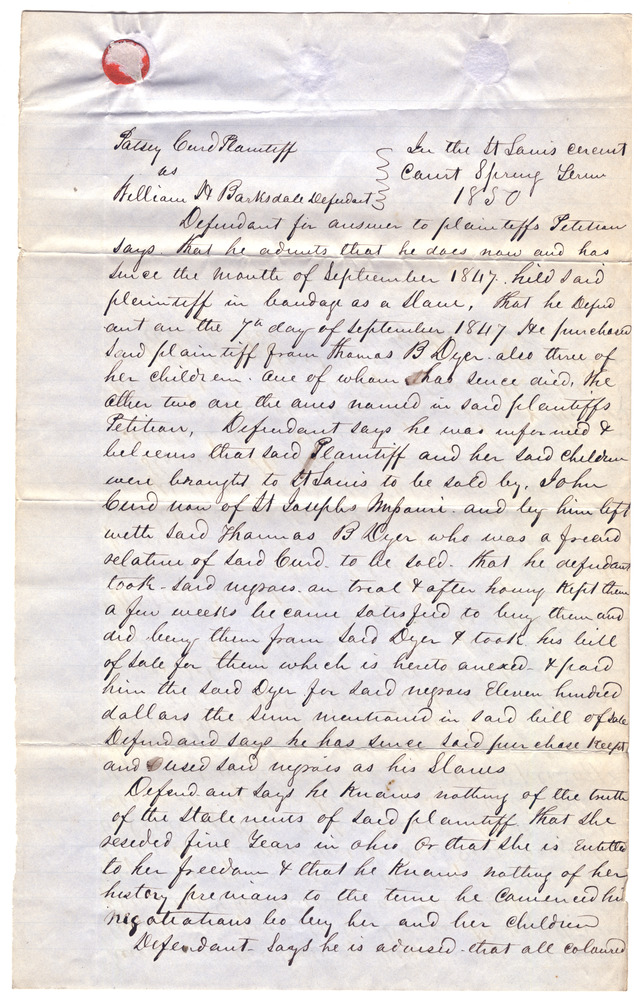 Patsey Curd Plaintiff
vs
William H Barksdale Defendant
In the St Louis cercuit
Court Spring Term
1850
Defendant for answer to plaintiffs Petition
says that he admits that he does now and has
since the month of September 1847. held said
plaintiff in bondage as a Slave, That he Defend
ant on the 7th day of September 1847 He purchased
said plaintiff from Thomas B Dyer. also three of
her children. one of whom has sence died, the
other two are the ones named in said plaintiffs
Petition, Defendant says he was informed &
beleives that said Plaintiff and her said children
were brought to St Louis to be sold by, John
Curd now of St Josephs Missouri. and by him left
with said Thomas B Dyer who was a freend
relative of said Curd. to be sold. that he defendant
took said negroes. on trial & after having Kept them
a few weeks became satisfied to buy them and
did buy them from said Dyer & took his bill
of sale for them which is hereto anexed. & paid
him the said Dyer for said negroes Eleven hundred
dollars the sum mentioned in said bill of sale
Defendand says he has since said purchase Keept
and used said negroes as his Slaves
Defendant says he Knows nothing of the truth
of the statements of said plaintiff that she
reseded five Years in ohio Or that she is entitled
to her freedom & that he Knows nothing of her
history previous to the time he comenced his
negotiations to buy her and her children
Defendant says he is advised that all coloured